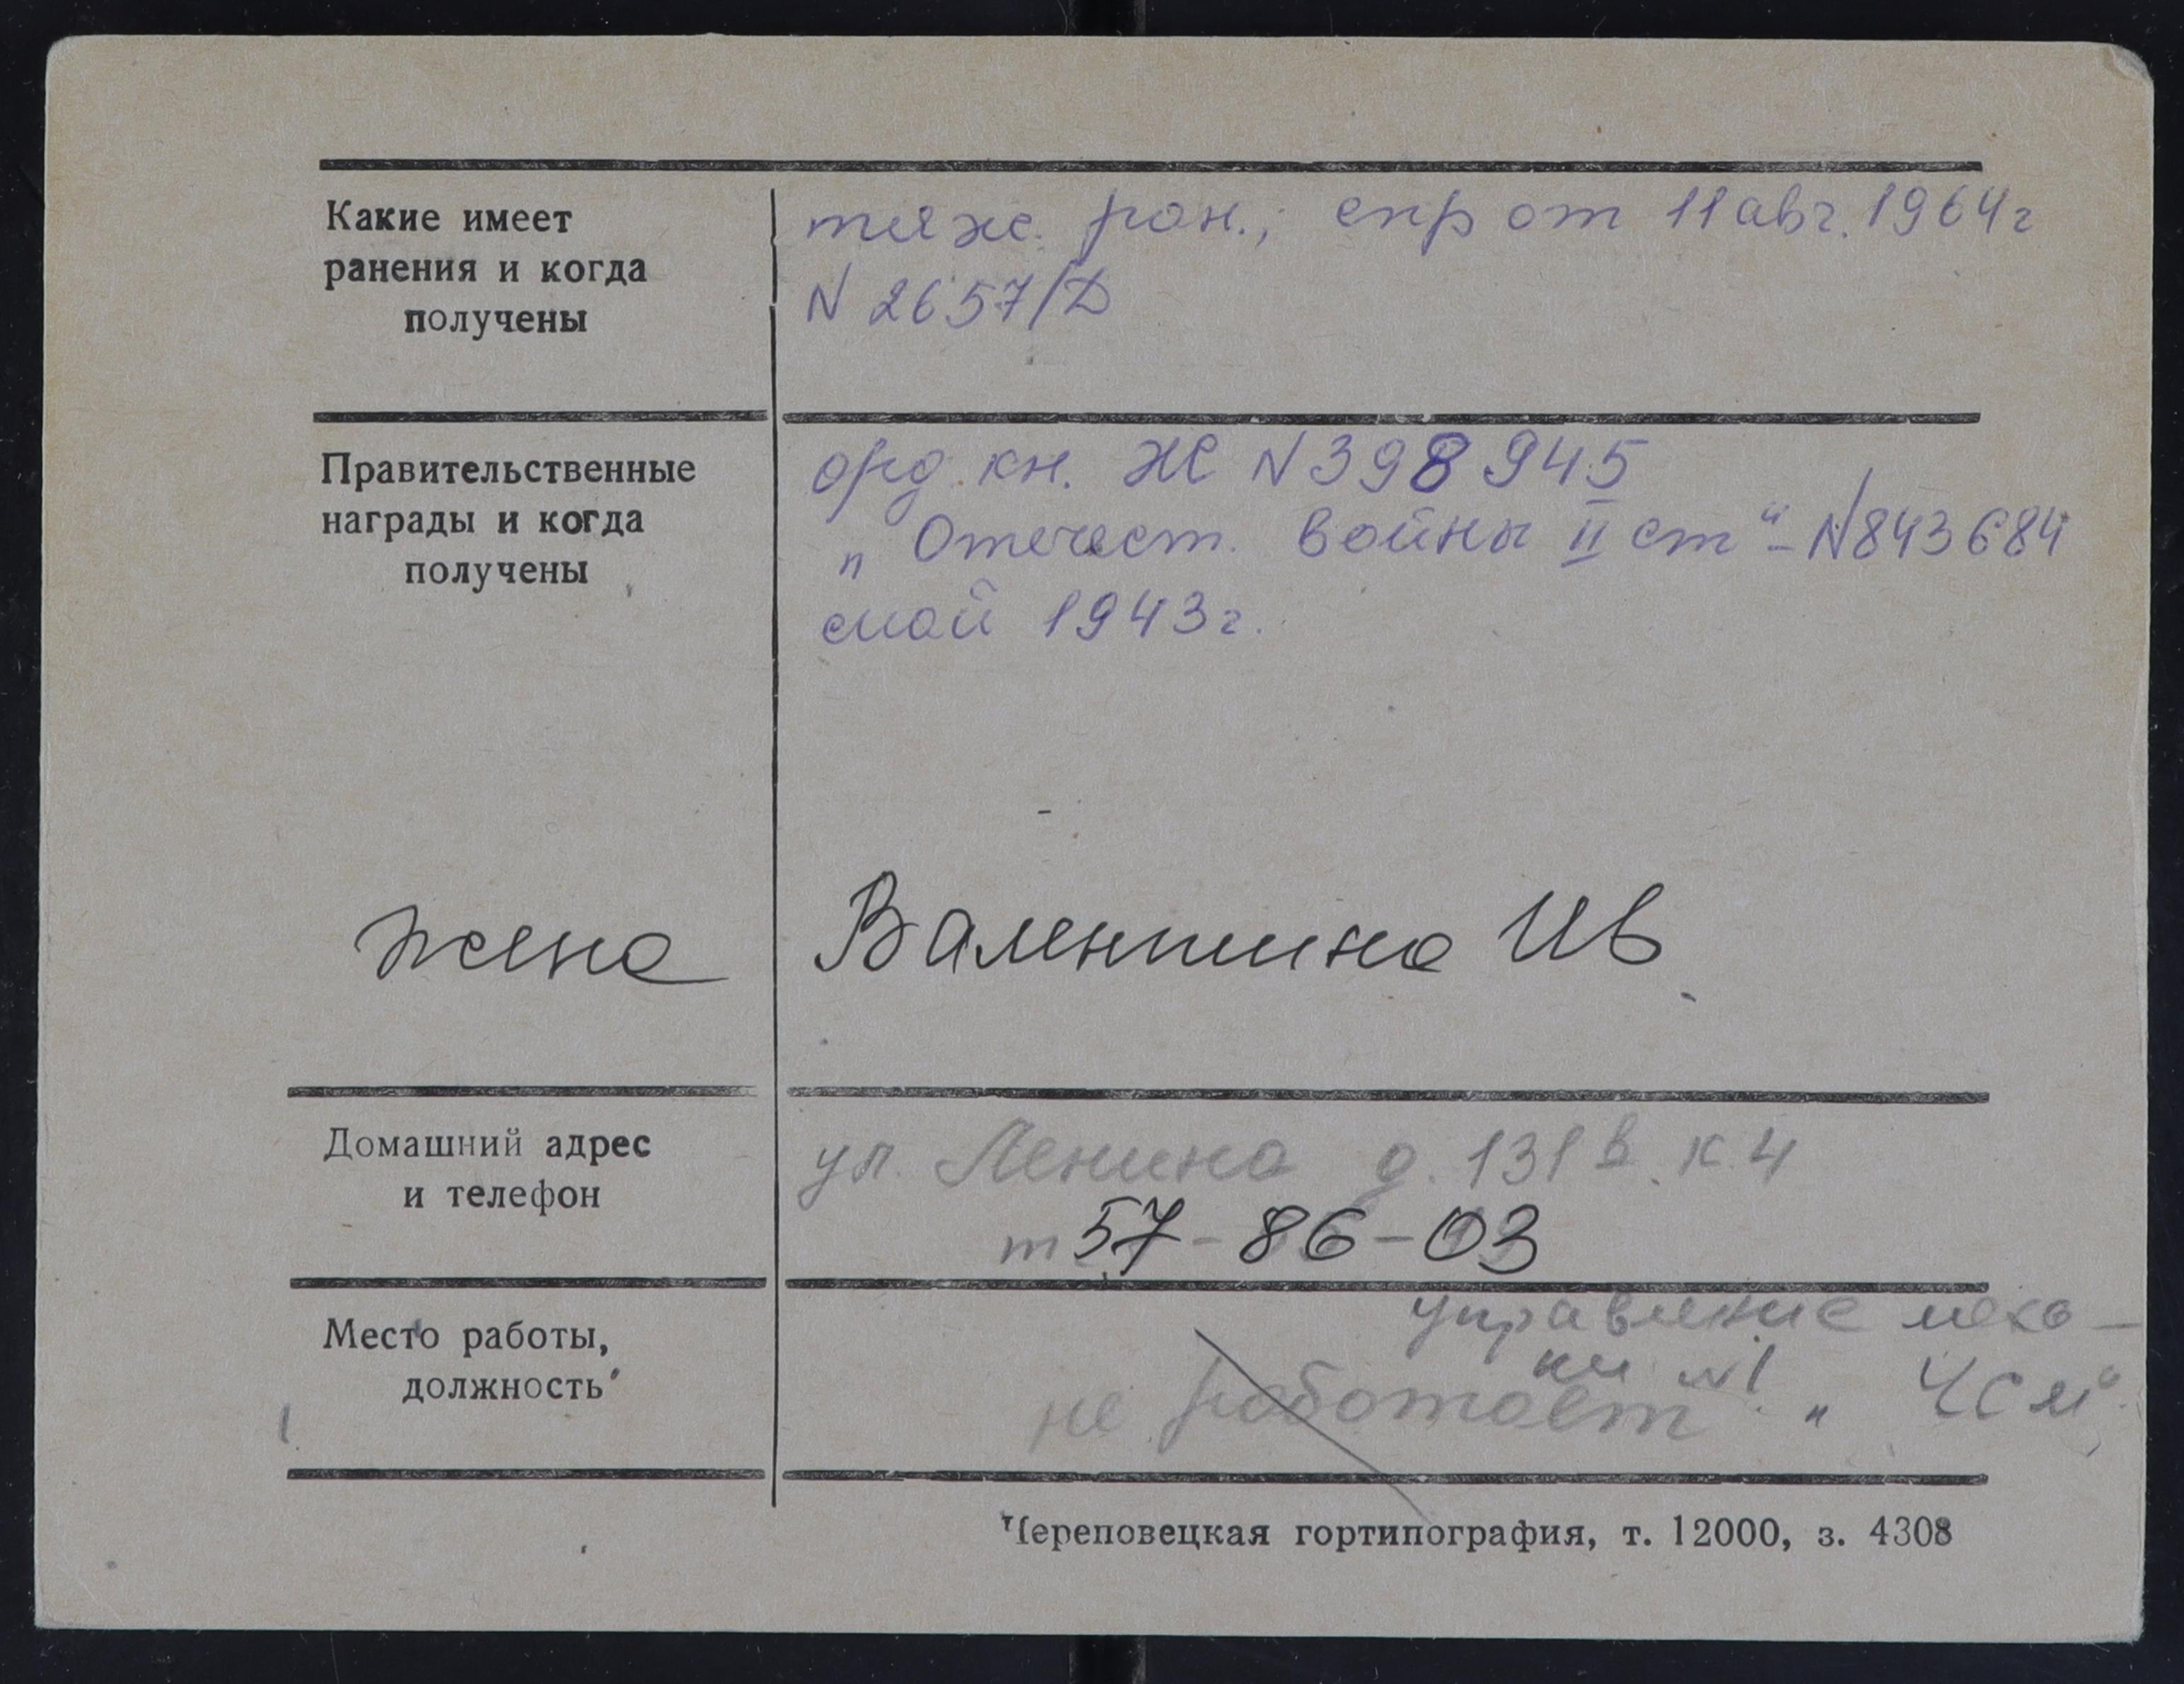 Какие имеет
ранения и когда
получены
тяж. ран.; спр от 11 авг. 1964 г
N 2657/D
Правительственные
награды и когда
получены
орд. кн. Ж N 398945
„Отечест. войны II ст“ - N 843684
с май 1943 г.
жена
Валентина Ив.
Домашний адрес
и телефон
ул. Ленина д. 131 в. к. 4
т 57-86-03
Место работы,
должность
управление меха-
ки N 1 „ЧСМ“
не работает
Череповецкая гортипография, т. 12000, з. 4308